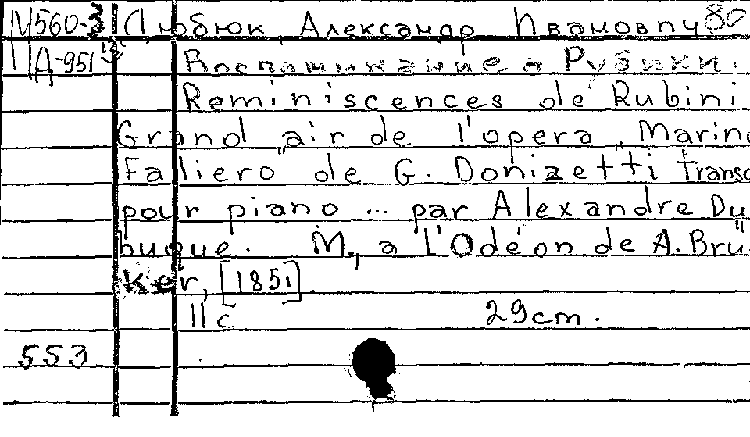 М560-3 Дюбюк, Александр Иванович 80
Д-951 Воспоминание о Рубини.
Reminiscences de Rubini.
Grand air de l'opera „Marino
Faliero" de G. Donizetti transc
pour piano ... par Alexandre Du
buque. M., a l'Odéon de A. Brü
ker, [1851].
11 c 29 cm.
553